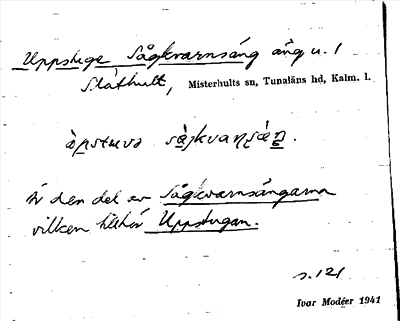 Uppstuge Sågkvarnsäng äng u. 1
Slåthult, Misterhults sn, Tunaläns hd, Kalm. l.
Är den del av Sågkvarnsängarna
vilken tillhör Uppstugan.
s. 121
Ivar Modéer 1941